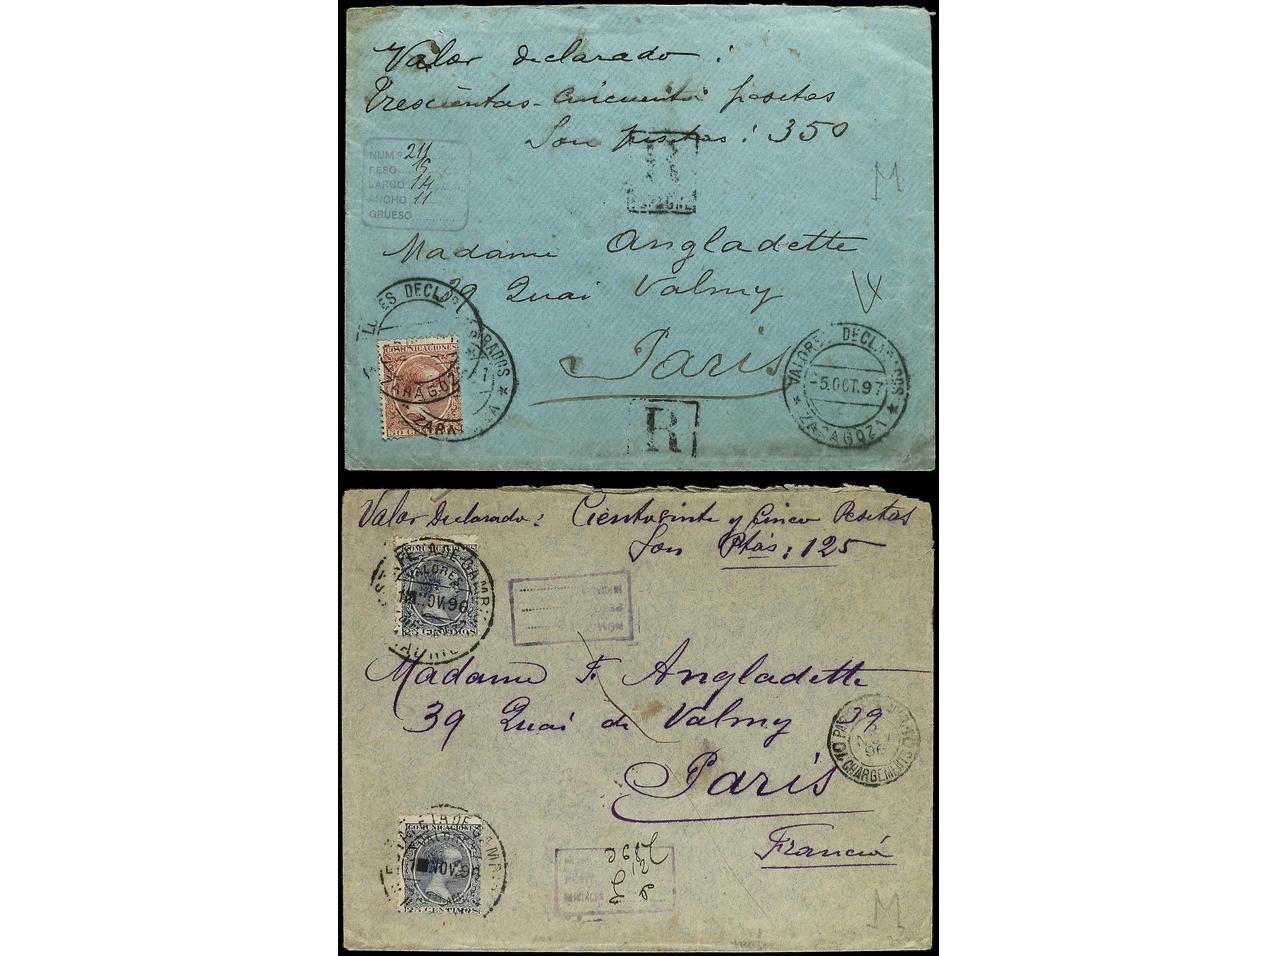 Valor declarado :
Trescientas Cincuenta pesetas
Son pesetas : 350
R
NUM.º 211
PESO 15 G.
LARGO 14 C.
ANCHO 11
GRUESO
Madame Angladette
39 Quai Valmy
Paris
VALORES DECLARADOS
5 OCT. 97
ZARAGOZA
COMUNICACIONES
ZARAGOZA
R
M
Valor Declarado : Cientovinte y Cinco Pesetas
Son Ptas : 125
COMUNICACIONES
VALORES
NOV. 96
25 CENTIMOS
Madame F. Angladette
39 Quai de Valmy 39
Paris
Francia
NOV
96
CHARGEMENTS
COMUNICACIONES
NOV. 96
25 CENTIMOS
M